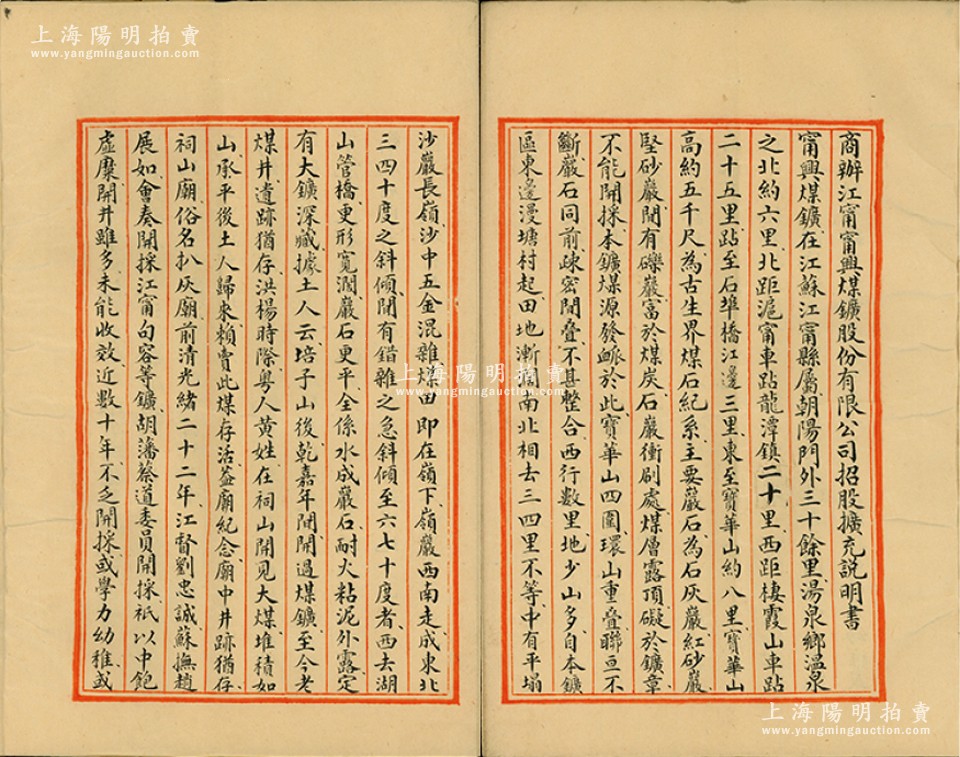 上海陽明拍賣
www.yangmingauction.com
商辦江甯甯興煤鑛股份有限公司招股擴充説明書
甯興煤鑛在江蘇江甯縣屬朝陽門外三十餘里湯泉鄉溫泉
之北約六里北距滬甯車跕龍潭鎮二十里西距棲霞山車跕
二十五里跕至石埠橋江邊三里東至寶華山約八里寶華山
高約五千尺為古生界煤石紀系主要巖石為石灰巖紅砂巖
堅砂巖閒有礫巖富於煤炭石巖衝刷處煤層露頂礙於鑛章
不能開採本鑛煤源發衇於此寶華山四圍環山重疊聯亘不
斷巖石同前疎密間疊不甚整合西行數里地少山多自本鑛
區東邊漫塘村起田地漸濶南北相去三四里不等中有平塌
沙巖長嶺沙中五金混雜煤田即在嶺下嶺巖西南走成東北
三四十度之斜傾閒有錯雜之急斜傾至六七十度者西去湖
山管橋更形寬濶巖石更平全係水成巖石耐火粘泥外露定
有大鑛深藏據土人云培子山後乾嘉年閒開過煤鑛至今老
煤井遺跡猶存洪楊時際粵人黄姓在祠山開見大煤堆積如
山承平後土人歸來賴賣此煤存活葢廟紀念廟中井跡猶存
祠山廟俗名扒灰廟前清光緒二十二年江督劉忠誠蘇撫趙
展如會奏開採江甯句容等鑛胡藩蔡道委員開採祇以中飽
虛糜開井雖多未能收效近數十年不乏開採或學力幼稚或
上海陽明拍賣
www.yangmingauction.com
上海陽明拍賣
www.yangmingauction.com